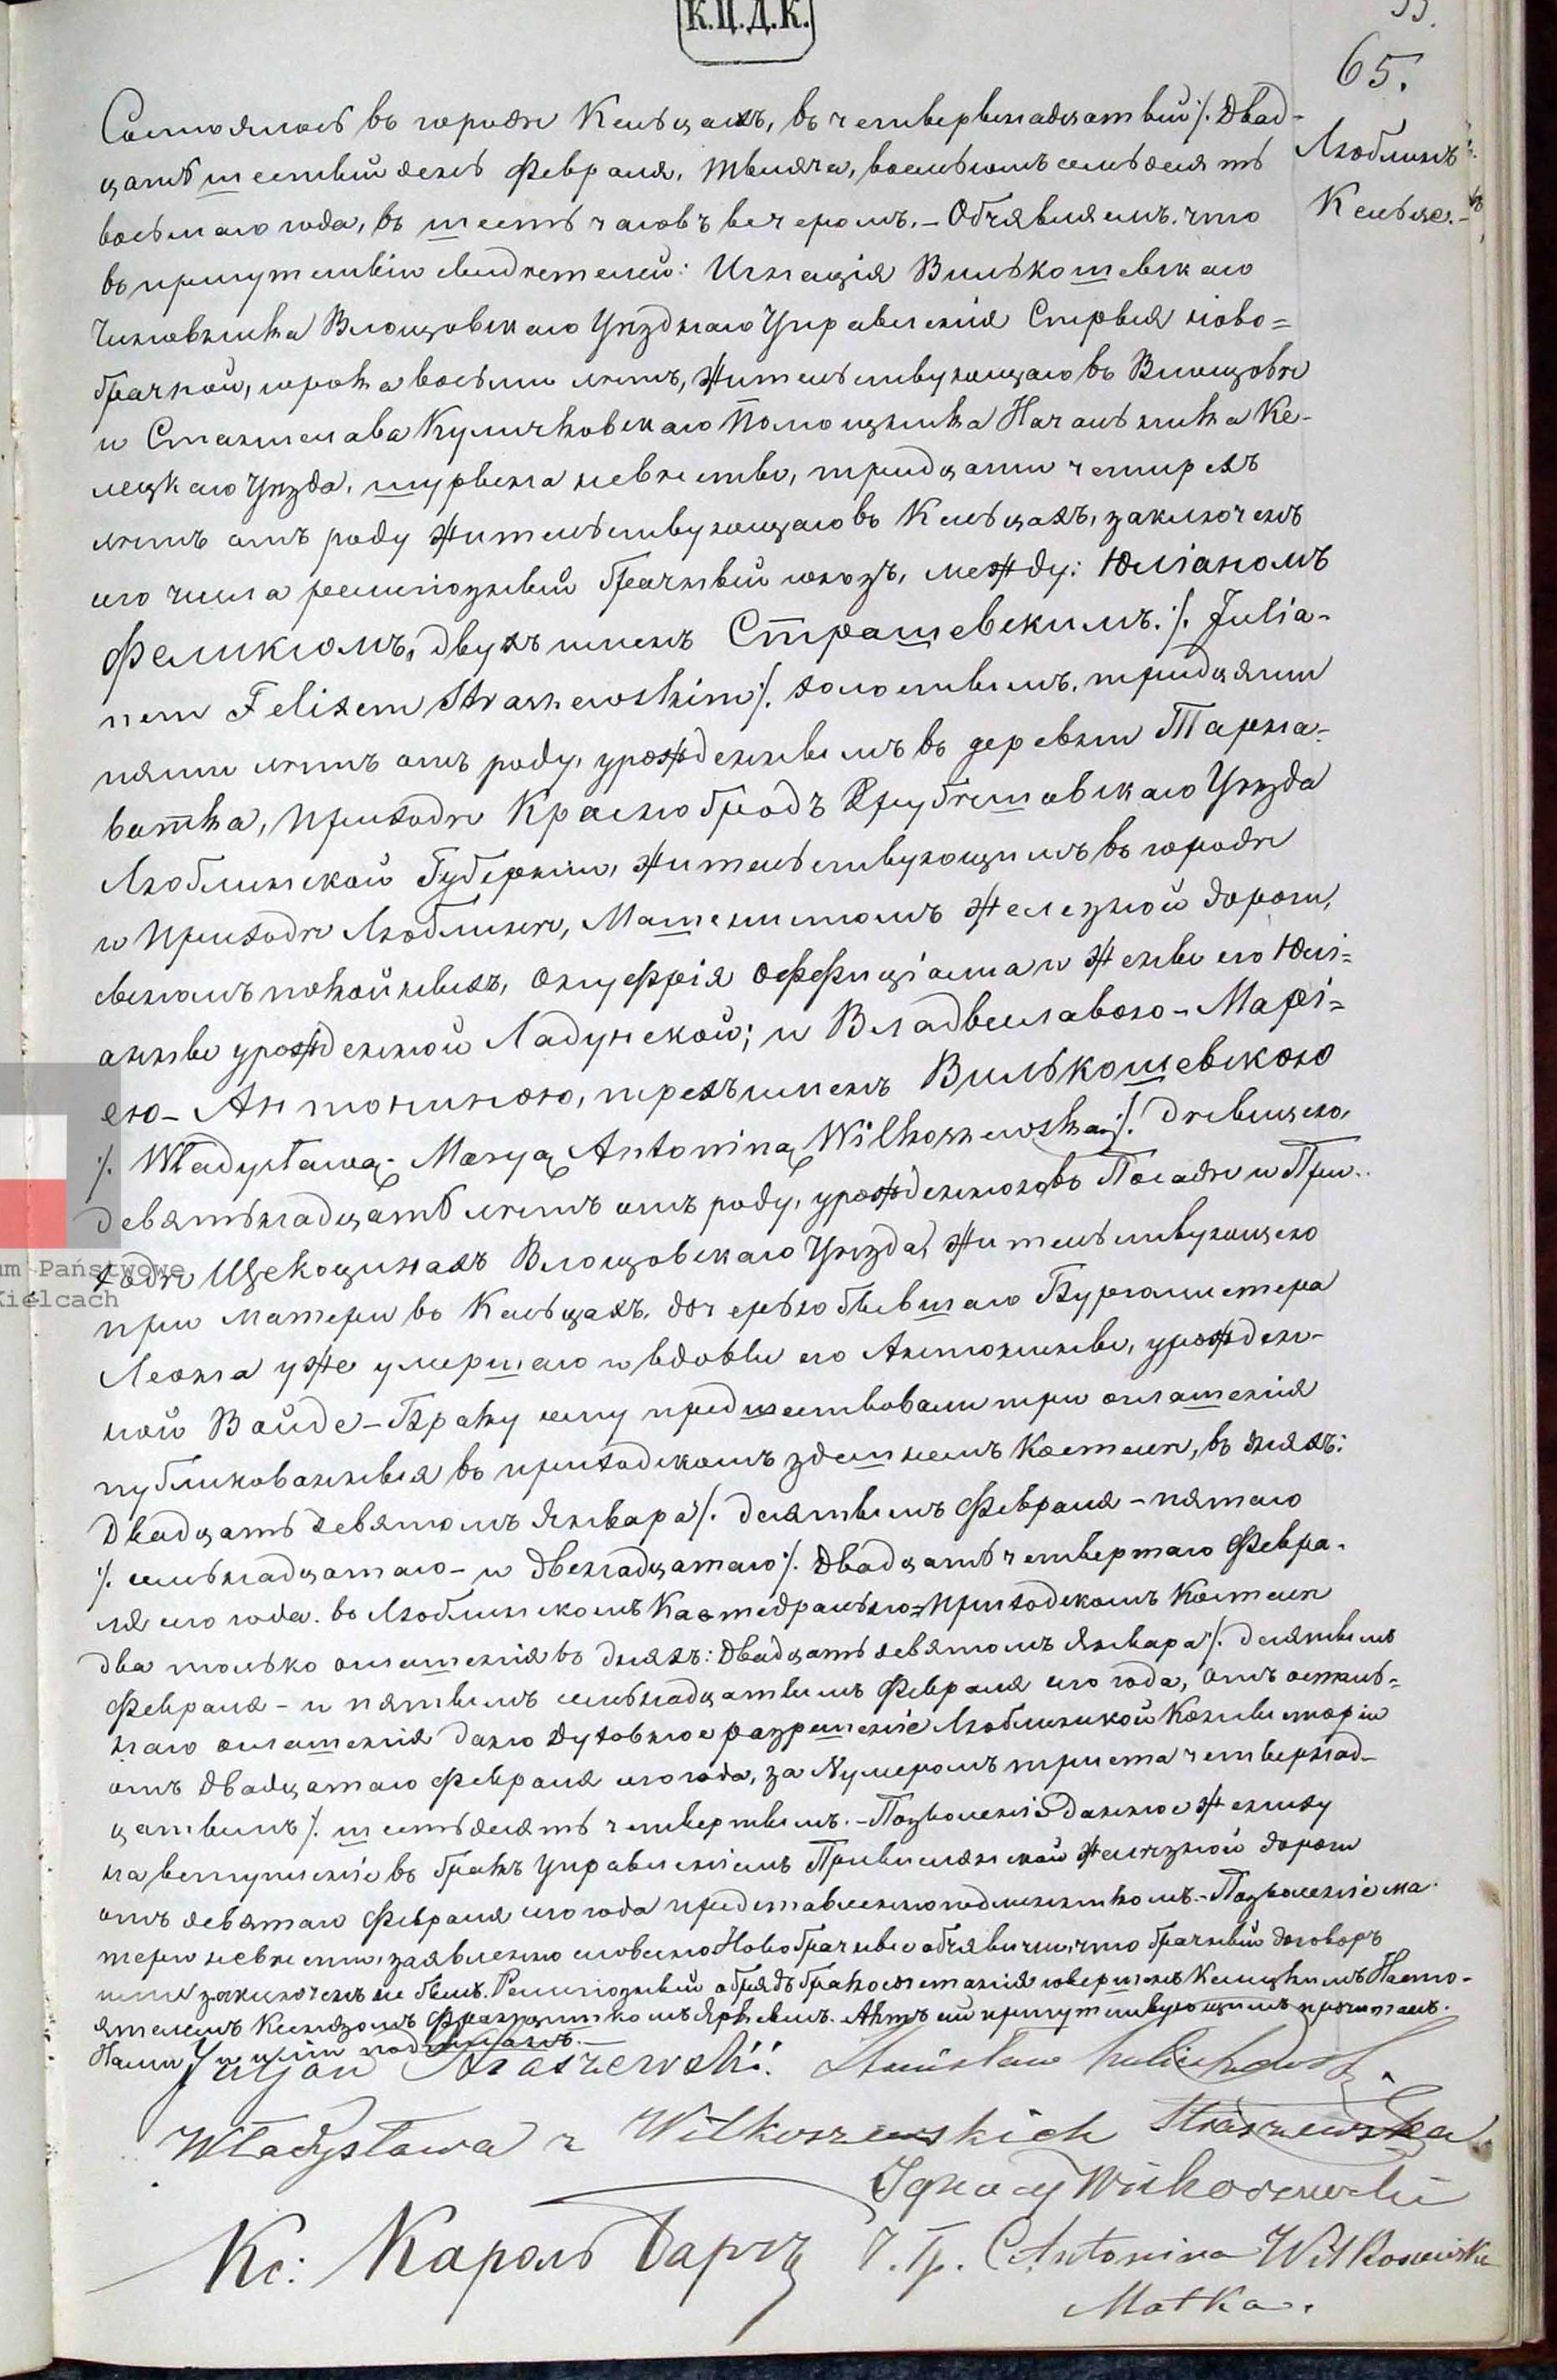 К.Ц.Д.К.
65.
Люблинъ
Кельце.
Состоялось въ городѣ Кельцахъ, въ четвервынадцатый ./. Двад-
цать шествый день Февраля, тысяча, восемьсотъ семьдесятъ
восьмаго года, въ шесть часовъ вечеромъ. – Объявляемъ. что
въ присутствіи свидѣтелей: Игнація Вилькошевскаго
Чиновника Влощовскаго Уѣзднаго Управленія Стрыя ново=
брачной, сорока восьми лѣтъ, жительствующаго въ Влощовѣ
и Станислава Куличковскаго Помощника Начальника Ке-
лецкаго Уѣзда, шурына невѣсты, тридцати четырехъ
лѣтъ отъ роду жительствующаго въ Кельцахъ, заключенъ
сего числа религіозный брачный союзъ, между: Юліаномъ
Феликсомъ, двухъ именъ Страшевскимъ ./. Julia-
nem Felixem Straszewskim ./. холостымъ, тридцяти
пяти лѣтъ отъ роду, урожденнымъ въ деревни Тарна-
ватка, приходѣ Краснобродъ Грубешовскаго Уѣзда
Люблинской Губерніи, жительствующимъ въ городѣ
и приходѣ Люблинѣ, Машенистомъ железной дороги,
сыномъ покойныхъ, Онуфрія Оффиціалиста и жены его Юлі=
анны урожденной Ладунской; и Владыславою-Марі=
ею-Антониною, трехъ именъ Вилькошевскою
./. Władysławą-Maryą Antoniną Wilkoszewską ./. дѣвицею,
девятьнадцать лѣтъ отъ роду, урожденною въ Посадѣ и При-
ходѣ Щекоцинахъ Влощовскаго Уѣзда, жительствующею
при матери въ Кельцахъ, дочерью бывшаго Бургомистера
Леона уже умершаго и вдовы его Антонины, урожден-
ной Войде – Браку сему предшествовали три оглашенія
публикованныя въ приходскомъ здешнемъ костелѣ, въ дняхъ:
Двадцать девятомъ Января ./. десятымъ Февраля – пятаго
./. семьнадцатаго – и двенадцатаго ./. Двадцать четвертаго Февра-
ля сего года. въ Люблинскомъ Каѳедрально-приходскомъ костелѣ
два только оглашенія въ дняхъ: Двадцать девятомъ Января ./. десятымъ
Февраля – и пятымъ семьнадцатымъ Февраля сего года, отъ осталь=
наго оглашенія дано духовное разрешеніе Люблинской Консисторіи
отъ двадцатаго Февраля сего года, за Нумеромъ триста четвернад-
цатымъ ./. шестьдесятъ четвертымъ. – Позволеніе данное жениху
на вступленіе въ бракъ Управленіемъ Привислянской желѣзной дороги
отъ девятаго Февраля сего года представлено подлинникомъ. – Позволеніе ма-
тери невѣсты, заявлено словесно Новобрачные объявили, что брачный договоръ
ими заключенъ не былъ. Религіозный обрядъ бракосочетанія совершенъ Келецкимъ Насто-
ятелемъ Ксендзомъ Францишкомъ Брževымъ. Актъ сей присутствующимъ прочитанъ.
Нами и ими подписанъ.
Julian Straszewski. Stanisław Kuliczkowski.
Władysława z Wilkoszewskich Straszewska
Ignacy Wilkoszewski
Кс: Кароль Antonina Wilkoszewska
Matka.
Państwowe
Kielcach